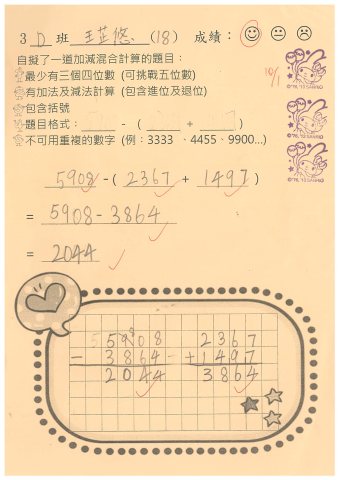 3 D 班 王芷悠 (18) 成績：
自擬了一道加減混合計算的題目：
最少有三個四位數 (可挑戰五位數)
有加法及減法計算 (包含進位及退位)
包含括號
題目格式：____ - (____ + ____)
不可用重複的數字 (例：3333、4455、9900...)
10/1
5908 - ( 2367 + 1497 )
= 5908 - 3864
= 2044
5908 2367
- 3864 + 1497
2044 3864